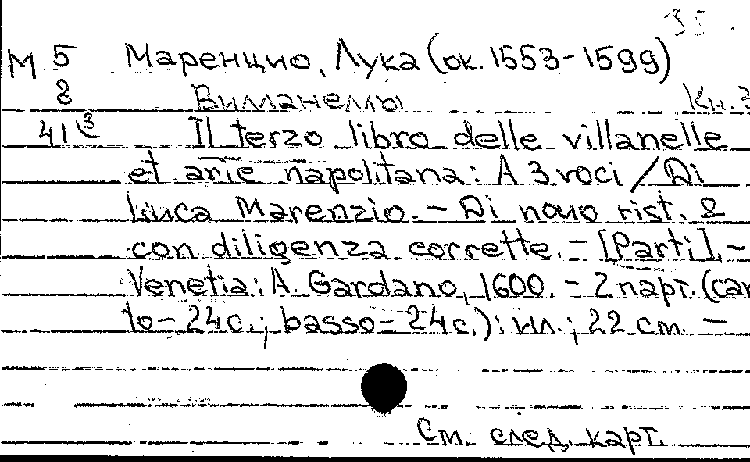 35.
М 5 Маренцио, Лука (ок. 1553-1599)
8 Вилланеллы Кн. 3
41 Il terzo libro delle villanelle
et arie napolitana: A 3 voci / Di
Luca Marenzio. - Di novo rist. &
con diligenza corrette. - [Parti]. -
Venetia: A. Gardano, 1600. - 2 парт. (can
to - 24 с.; basso - 24 с.): ил.; 22 см. -
См. след. карт.